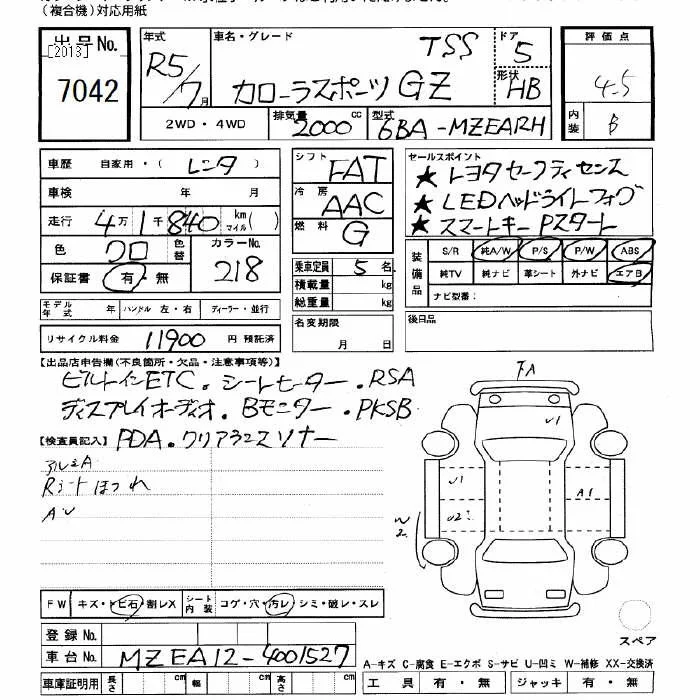 （複合機）対応用紙
出品No.
[2013]
7042
年式
R5/7月
車名・グレード
TSS
カローラスポーツ GZ
ドア
5
形状
HB
評価点
4.5
内装
B
2WD・4WD
排気量
2000cc
型式
6BA-MZEA12H
車歴 自家用・(レンタ)
車検 年 月
走行 4万1千840 km マイル( )
色 クロ
色替
カラーNo. 218
保証書 有・無
シフト FAT
冷房 AAC
燃料 G
乗車定員 5名
積載量 kg
総重量 kg
セールスポイント
★トヨタセーフティセンス
★LEDヘッドライトフォグ
★スマートキー Pスタート
装備品
S/R 純A/W P/S P/W ABS
純TV 純ナビ 革シート 外ナビ エアB
ナビ型番：
モデル年式 ハンドル 左・右 ディーラー・並行
名変期限
月 日
後日品
リサイクル料金 11900 円 預託済
【出品店申告欄(不良箇所・欠品・注意事項等)】
ビルトインETC.シートヒーター.RSA
ディスプレイオーディオ.Bモニター.PKSB
【検査員記入】PDA.クリアランスソナー
アルミA
Rシートほつれ
FA
U1
U1
U2
A1
W2
FW キズ・トビ石・割レX
シート内装 コゲ・穴・汚レ・シミ・破レ・スレ
スペア
登録No.
車台No. MZEA12-4001527
A-キズ C-腐食 E-エクボ S-サビ U-凹ミ W-補修 XX-交換済
車庫証明用 長さ cm 幅 cm 高さ cm
工具 有・無 ジャッキ 有・無